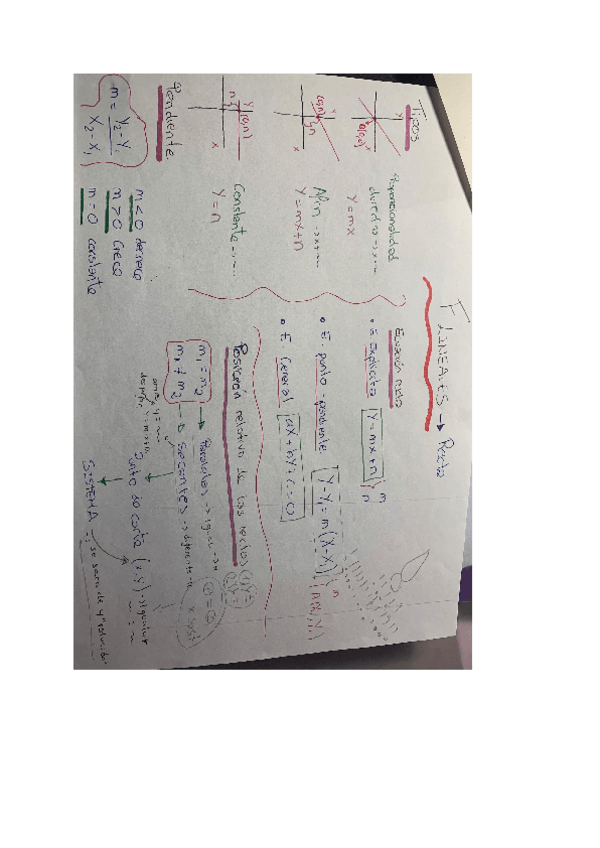 F LINEALES → Recta
Tipos
Proporcionalidad
directa
y = mx
(0,0)
y
x
Afín
y = mx+n
(0,n)
n
x
Constante
y = n
y (0,n)
n
x
Pendiente
m = y₂-y₁ / x₂-x₁
m<0 decrece
m>0 crece
m=0 constante
Ecuación recta
• E. explícita y = mx+n } m n
• E. punto-pendiente y-y₁ = m(x-x₁) { m
• E. General ax+by+c=0
Posición relativa de las rectas
m₁ = m₂ → Paralelas → igual
m₁ ≠ m₂ → Secantes → diferente
Punto de corte (x,y)
SISTEMA → se saca de